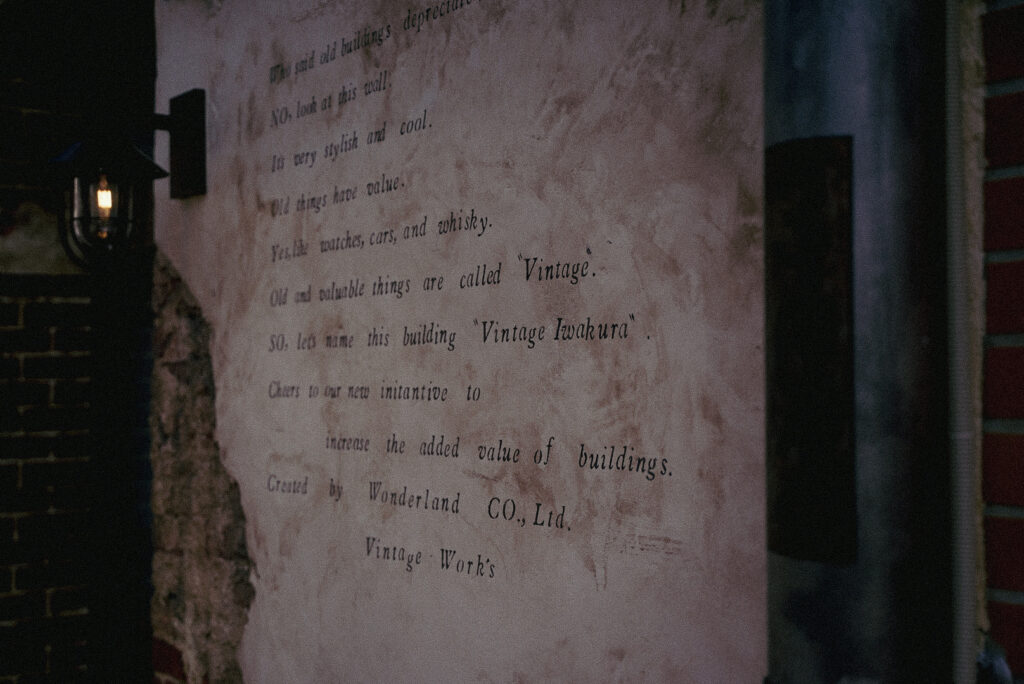 Who said old building's depreciate
NO, look at this wall.
It's very stylish and cool.
Old things have value.
Yes, like watches, cars, and whisky.
Old and valuable things are called "Vintage".
SO, let's name this building "Vintage Iwakura".
Cheers to our new initantive to
increase the added value of buildings.
Created by Wonderland CO., Ltd.
Vintage Work's